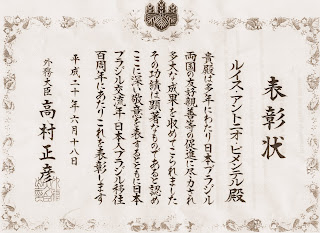 表彰状
ルイス・アントニオ・ピメンテル殿
貴殿は多年にわたり日本ブラジル
両国の友好親善等の促進に尽力され
多大な成果を収めてこられました
その功績は顕著なものであると認め
ここに深い敬意を表するとともに日本
ブラジル交流年・日本人ブラジル移住
百周年にあたりこれを表彰します
平成二十年六月十八日
外務大臣 高村正彦